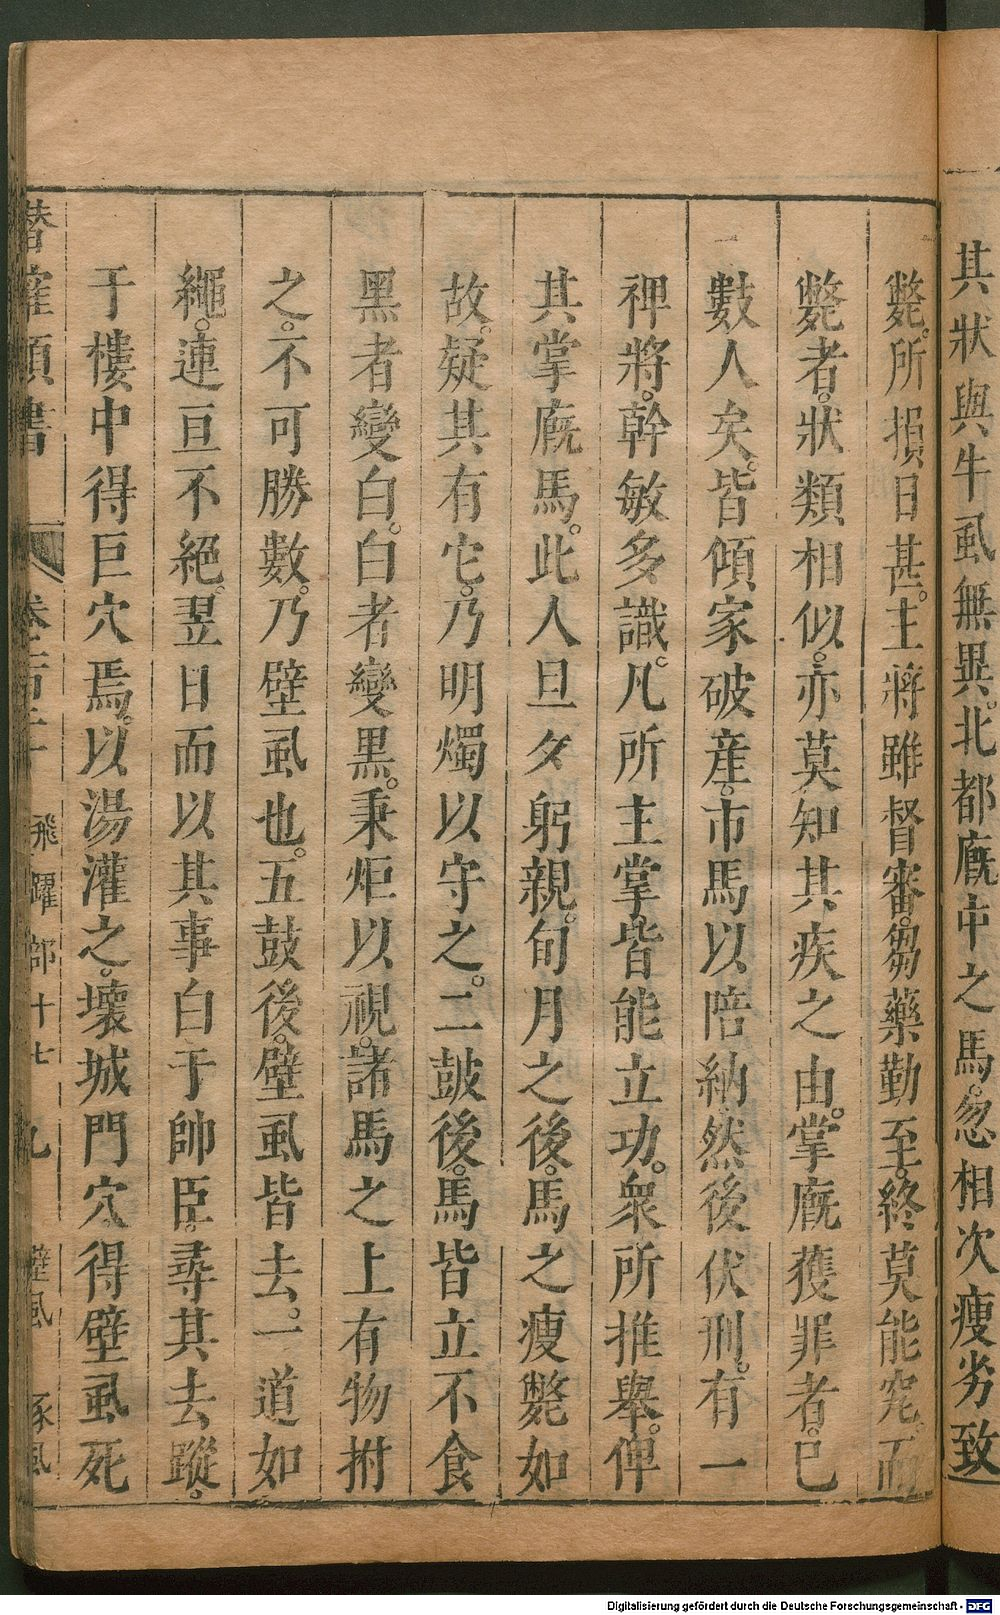 其狀與牛虱無異。北都廐中之馬。忽相次瘦劣致
斃。所損日甚。主將雖督審。芻藥勤至。終莫能究。而
斃者。狀類相似。亦莫知其疾之由。掌廐獲罪者。已
數人矣。皆傾家破産。市馬以陪納。然後伏刑。有一
裨將。幹敏多識。凡所主掌。皆能立功。衆所推舉。俾
其掌廐馬。此人旦夕躬親。旬月之後。馬之瘦斃如
故。疑其有它。乃明燭以守之。二皷後。馬皆立不食
黑者變白。白者變黑。秉炬以視。諸馬之上有物拊
之。不可勝數。乃壁虱也。五鼓後。壁虱皆去。一道如
繩。連亘不絕。翌日而以其事白于帥臣。尋其去蹤。
于樓中得巨穴焉。以湯灌之。壞城門穴得壁虱死
潛確類書 飛躍部十七 九 壁虱 豕虱
Digitalisierung gefördert durch die Deutsche Forschungsgemeinschaft - DFG